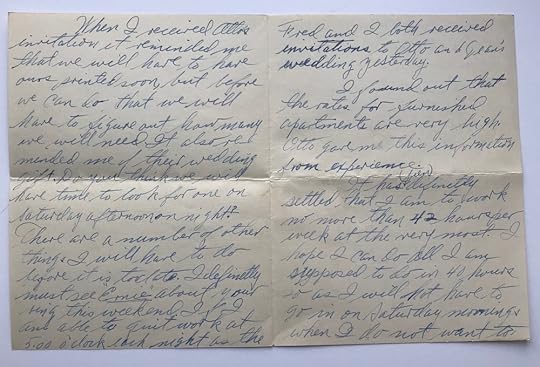 When I received Otto's
invitation it reminded me
that we will have to have
ours printed soon, but before
we can do that we will
have to figure out how many
we will need. It also re
minded me of their wedding
gift. Do you think we will
have time to look for one on
Saturday afternoon or night?
There are a number of other
things I will have to do
before it is too late. I definetly
must see "Ernie" about your
ring this weekend. If I
am able to quit work at
5:00 o'clock each night as the
Fred and I both received
invitations to Otto an
wedding yesterday.
I found out that
the rates for furnished
apartments are very high.
Otto gave me this information
from experience.
It has been definetly
settled that I am to work
no more than 42 hours per
week at the very most. I
hope I can do all I am
supposed to do in 40 hours
so as I will not have to
go in on Saturday mornings
when I do not want to